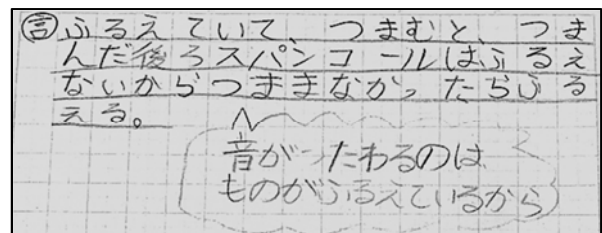 ㊂ふるえていて、つまむと、つま
んだ後ろスパンコールはふるえ
ないからつままなかったらふる
える。
音がつたわるのは
ものがふるえているから